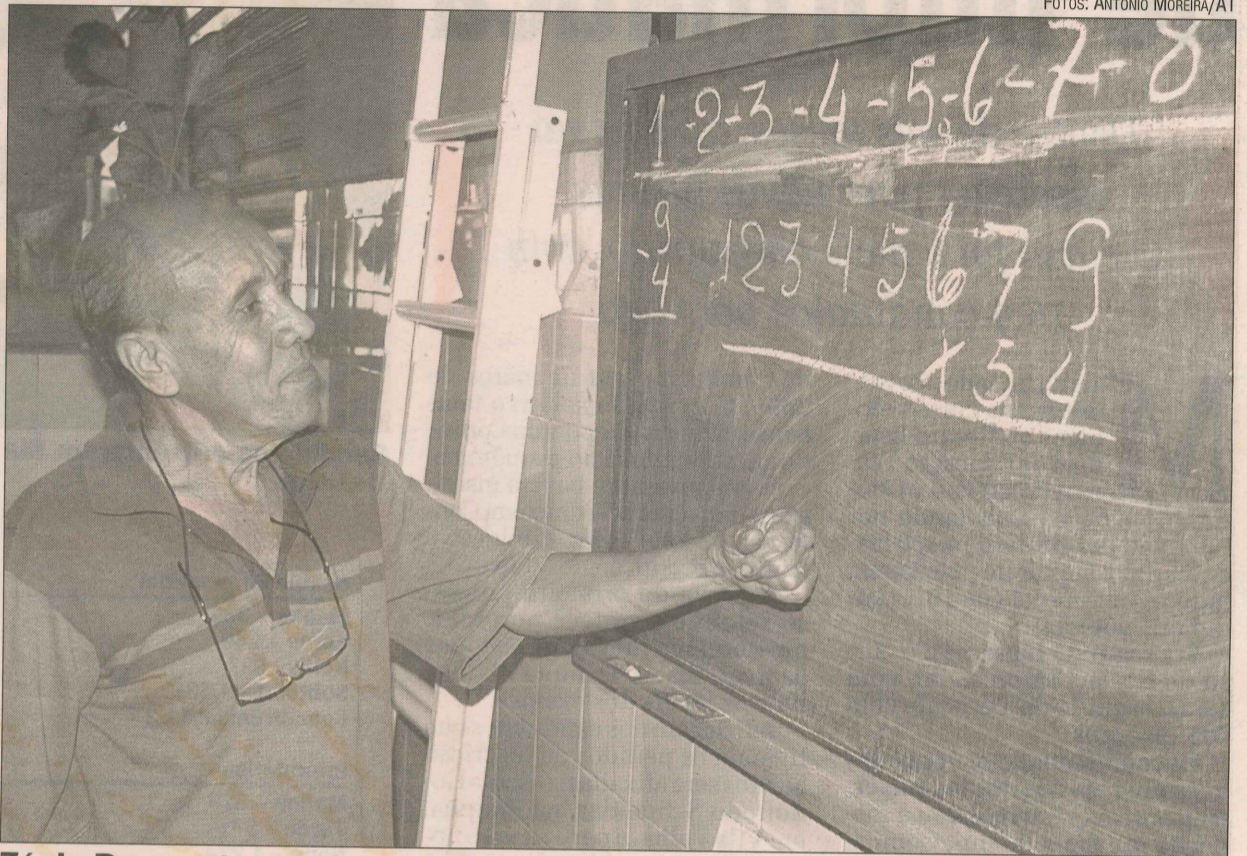 FOTOS: ANTONIO MOREIRA/AT
1-2-3-4-5-6-7-8
9 12345679
-4 x54